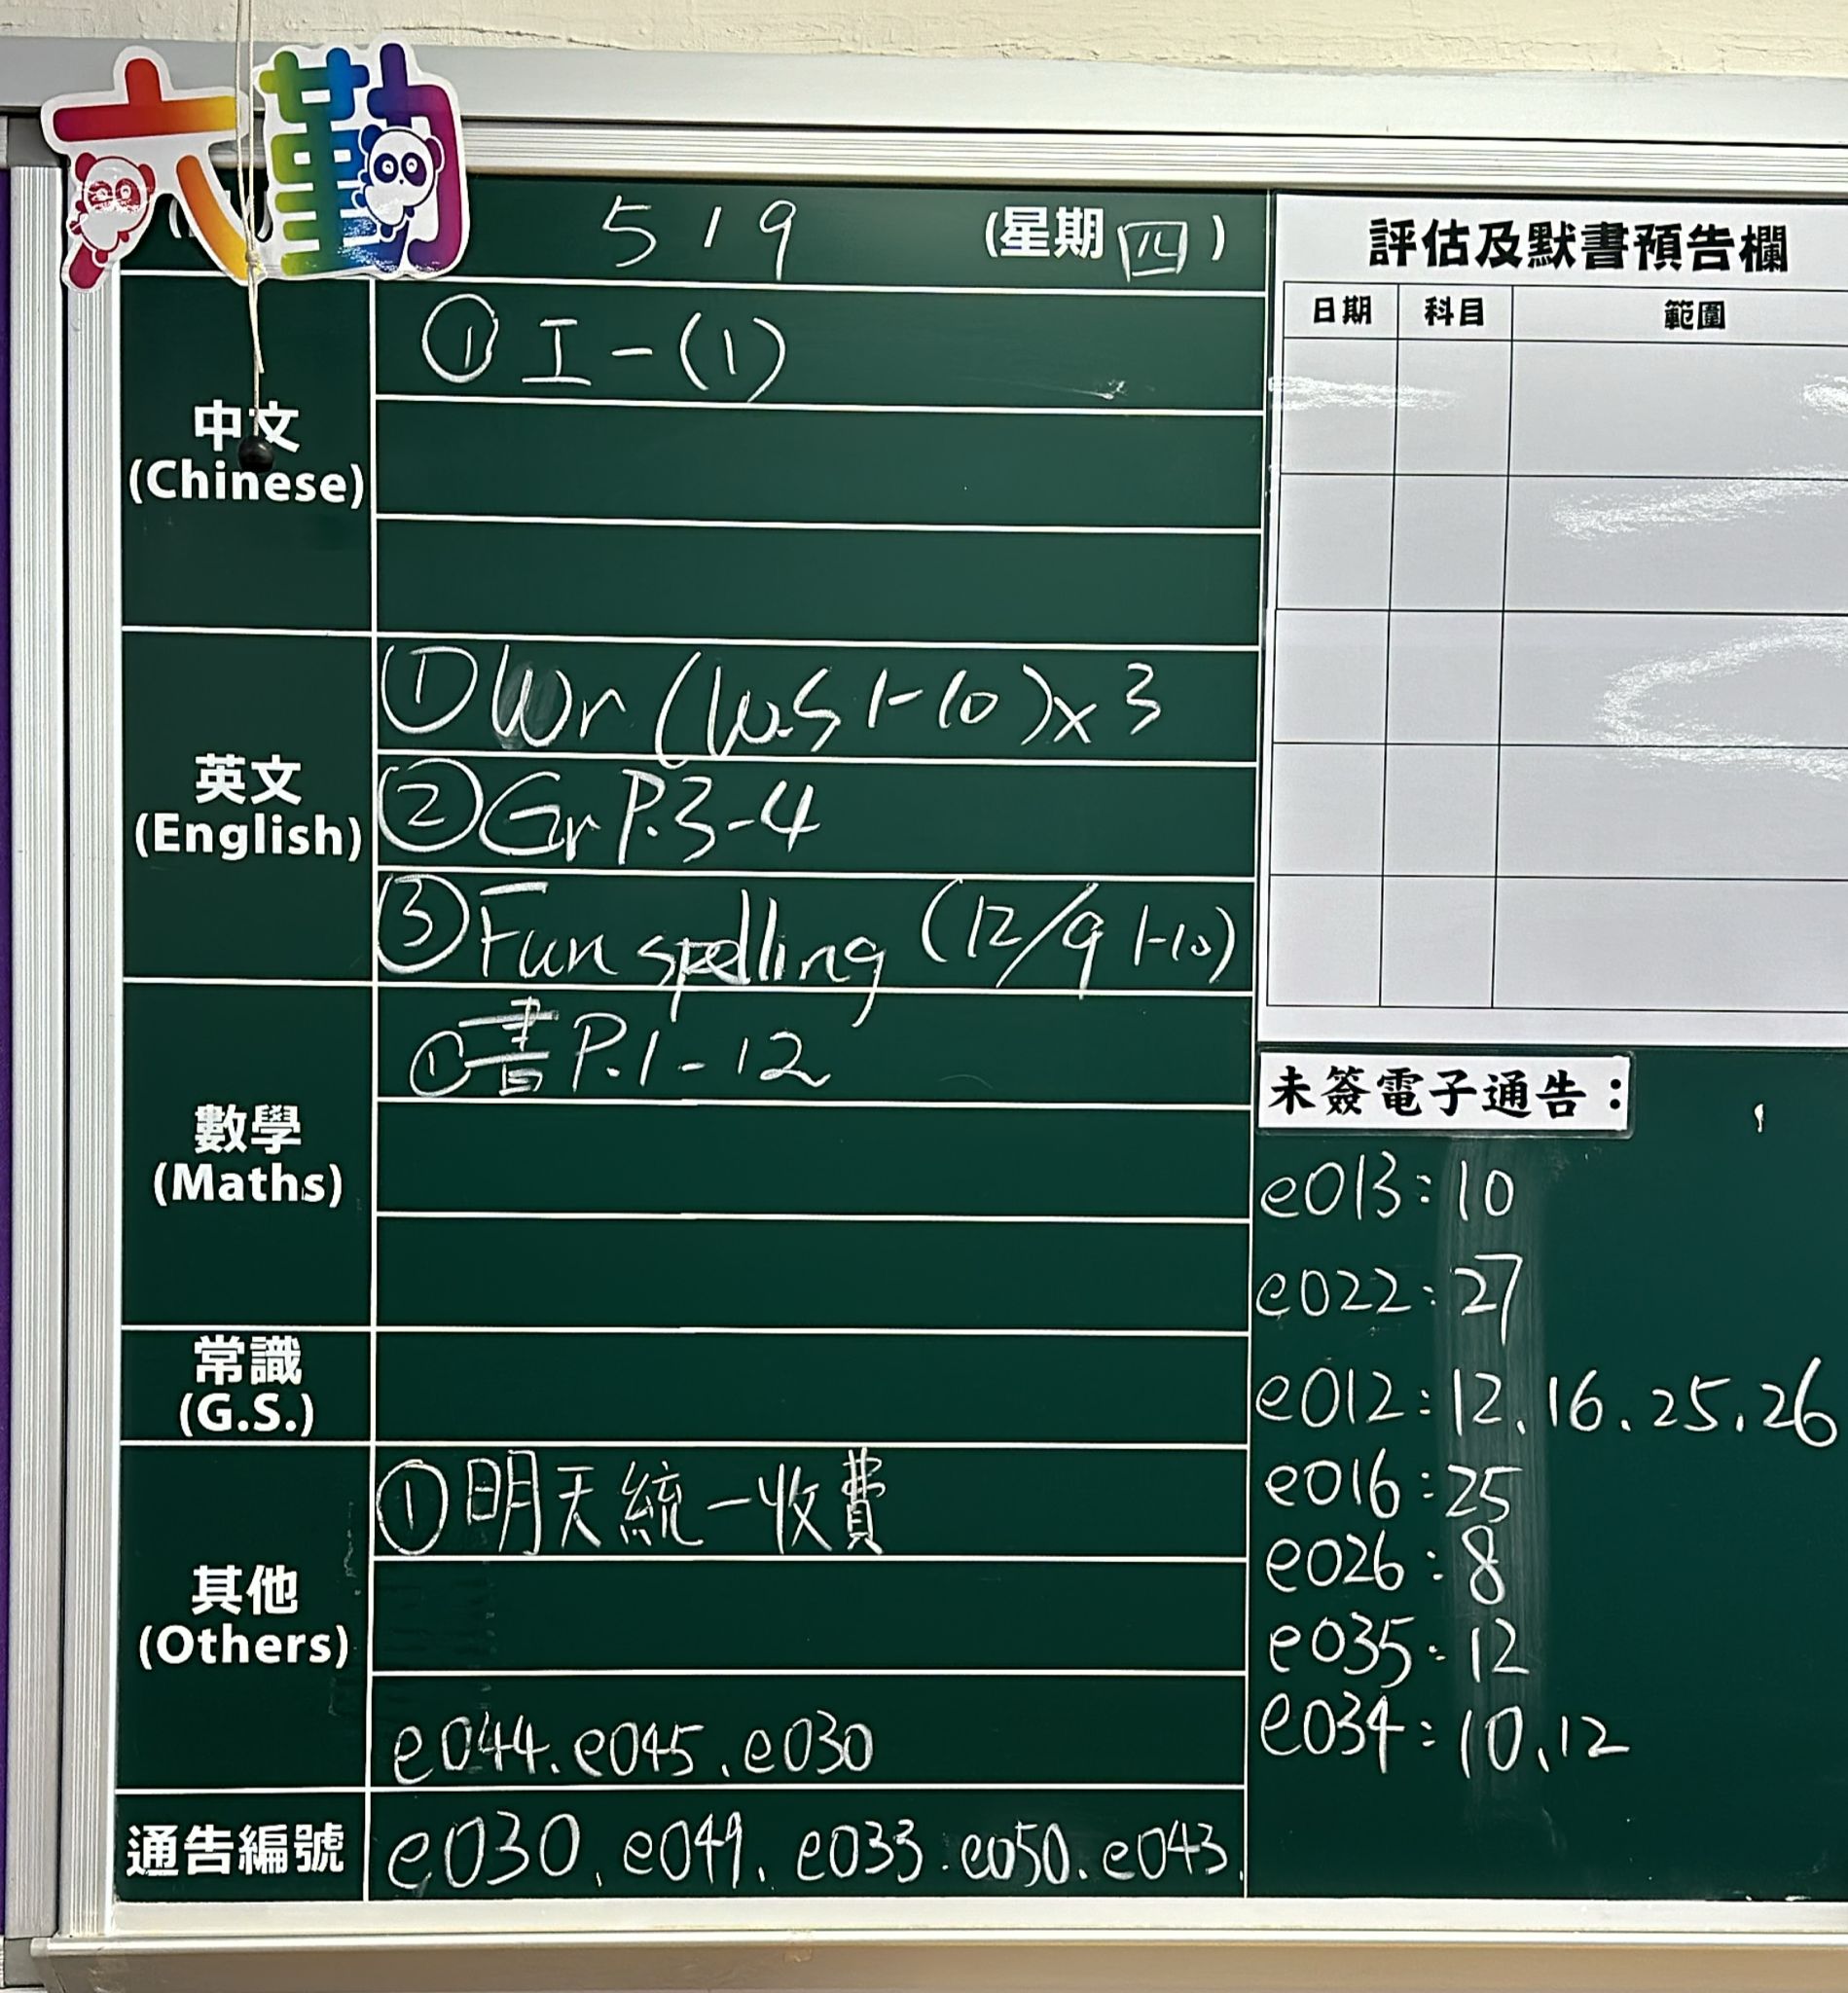 六勤
5/9 (星期四)
中文
(Chinese)
① 工-(1)
英文
(English)
① Wr (w.s 1-10)x3
② Gr P.3-4
③ Fun spelling (12/9 1-10)
數學
(Maths)
① 書 P.1-12
常識
(G.S.)
其他
(Others)
① 明天統一收費
e044、e045、e030
通告編號
e030、e049、e033、e050、e043、
評估及默書預告欄
日期 科目 範圍
未簽電子通告：
e013:10
e022:27
e012:12、16、25、26
e016:25
e026:8
e035:12
e034:10、12